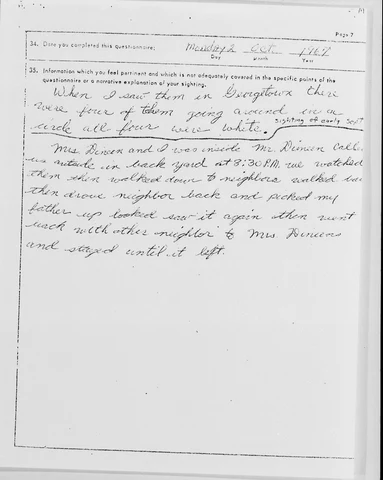 Page 7
34. Date you completed this questionnaire: Monday 2 Oct 1967
Day Month Year
35. Information which you feel pertinent and which is not adequately covered in the specific points of the
questionnaire or a narrative explanation of your sighting.
When I saw them in Georgetown there
were four of them going around in a
circle all four were white. sighting of early Sept
Mrs Dineen and I was inside Mr. Dineen Call
us outside in back yard at 8:30 P.M. we watched
them then walked down to neighbors walked
then drove neighbor back and picked my
father up looked saw it again then went
back with other neighbor to Mrs. Dineens
and stayed until it left.